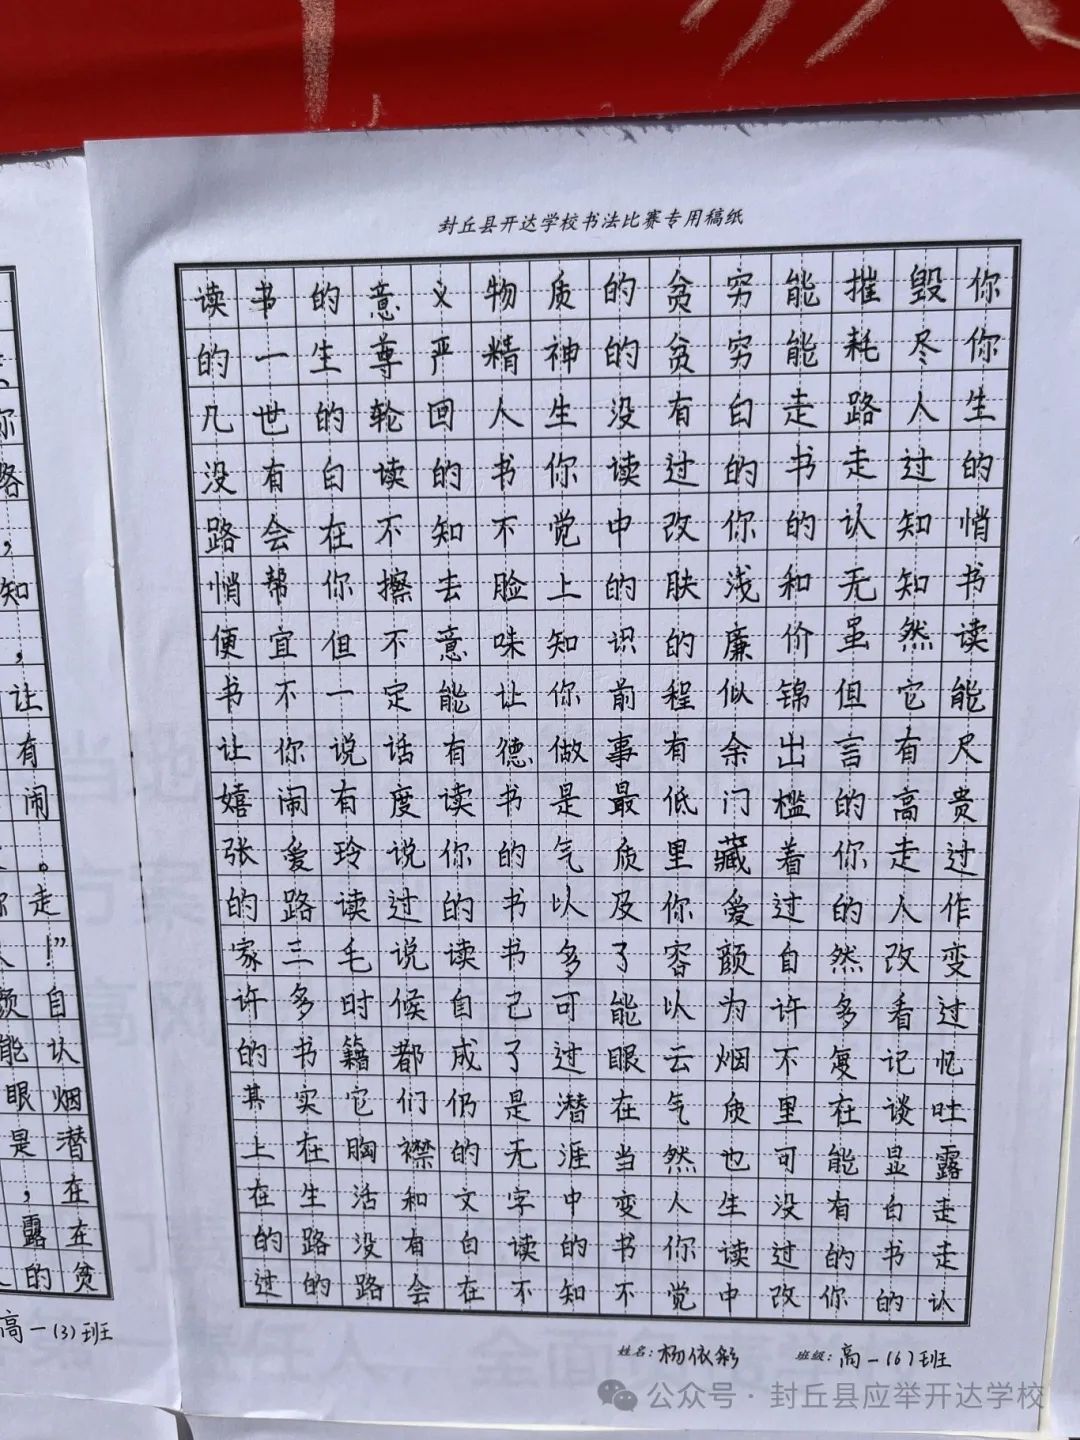 封丘县开达学校书法比赛专用稿纸
读书的意义物质的贫穷能摧毁你
的一生尊严精神的贫穷能耗尽你
几世的轮回人生没有白走路人生
没有白读的书你读过的书走过的
路会在不知不觉中改你的认知悄
悄帮你擦去脸上的肤浅和无知书
便宜但不意味知识的廉价虽然读
书不一定能让你前程似锦但它能
让你说话有德做事有余出言有尺
嬉闹有度读书是最低门槛的高贵
张爱玲说你的气质里藏着你走过
的路读过的书以及你爱过的人作
家三毛说读书多了容颜自然改变
许多时候自己可能以为许多看过
的书籍都成了过眼云烟不复记忆
其实它们仍是潜在气质里在谈吐
上在胸襟的无涯当然也可能显露
在生活和文字中变人生没有白走
的路没有白读的书你读过的书走
过的路会在不知不觉中改你的认
姓名：杨依彩 班级：高一（6）班
你
路
，
知
，
让
有
闹
。
你走
！”
颜自
能以
眼烟
是潜
，在
露在
的贫
高一（3）班
公众号·封丘县应举开达学校